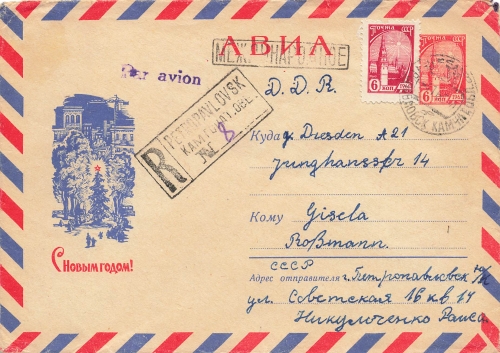 АВИА
МЕЖДУНАРОДНОЕ
Par avion
D.D.R.
R PETROPAVLOVSK
KAMTCHAT. OBL.
№ 8
ПОЧТА СССР
6 КОП
ПОЧТА СССР
6 КОП
Куда g. Dresden A 21
Junghansstr 14
Кому Gisela
Roßmann
С Новым годом!
СССР
Адрес отправителя г. Петропавловск
ул. Советская 16 кв. 14
Никульченко Раиса